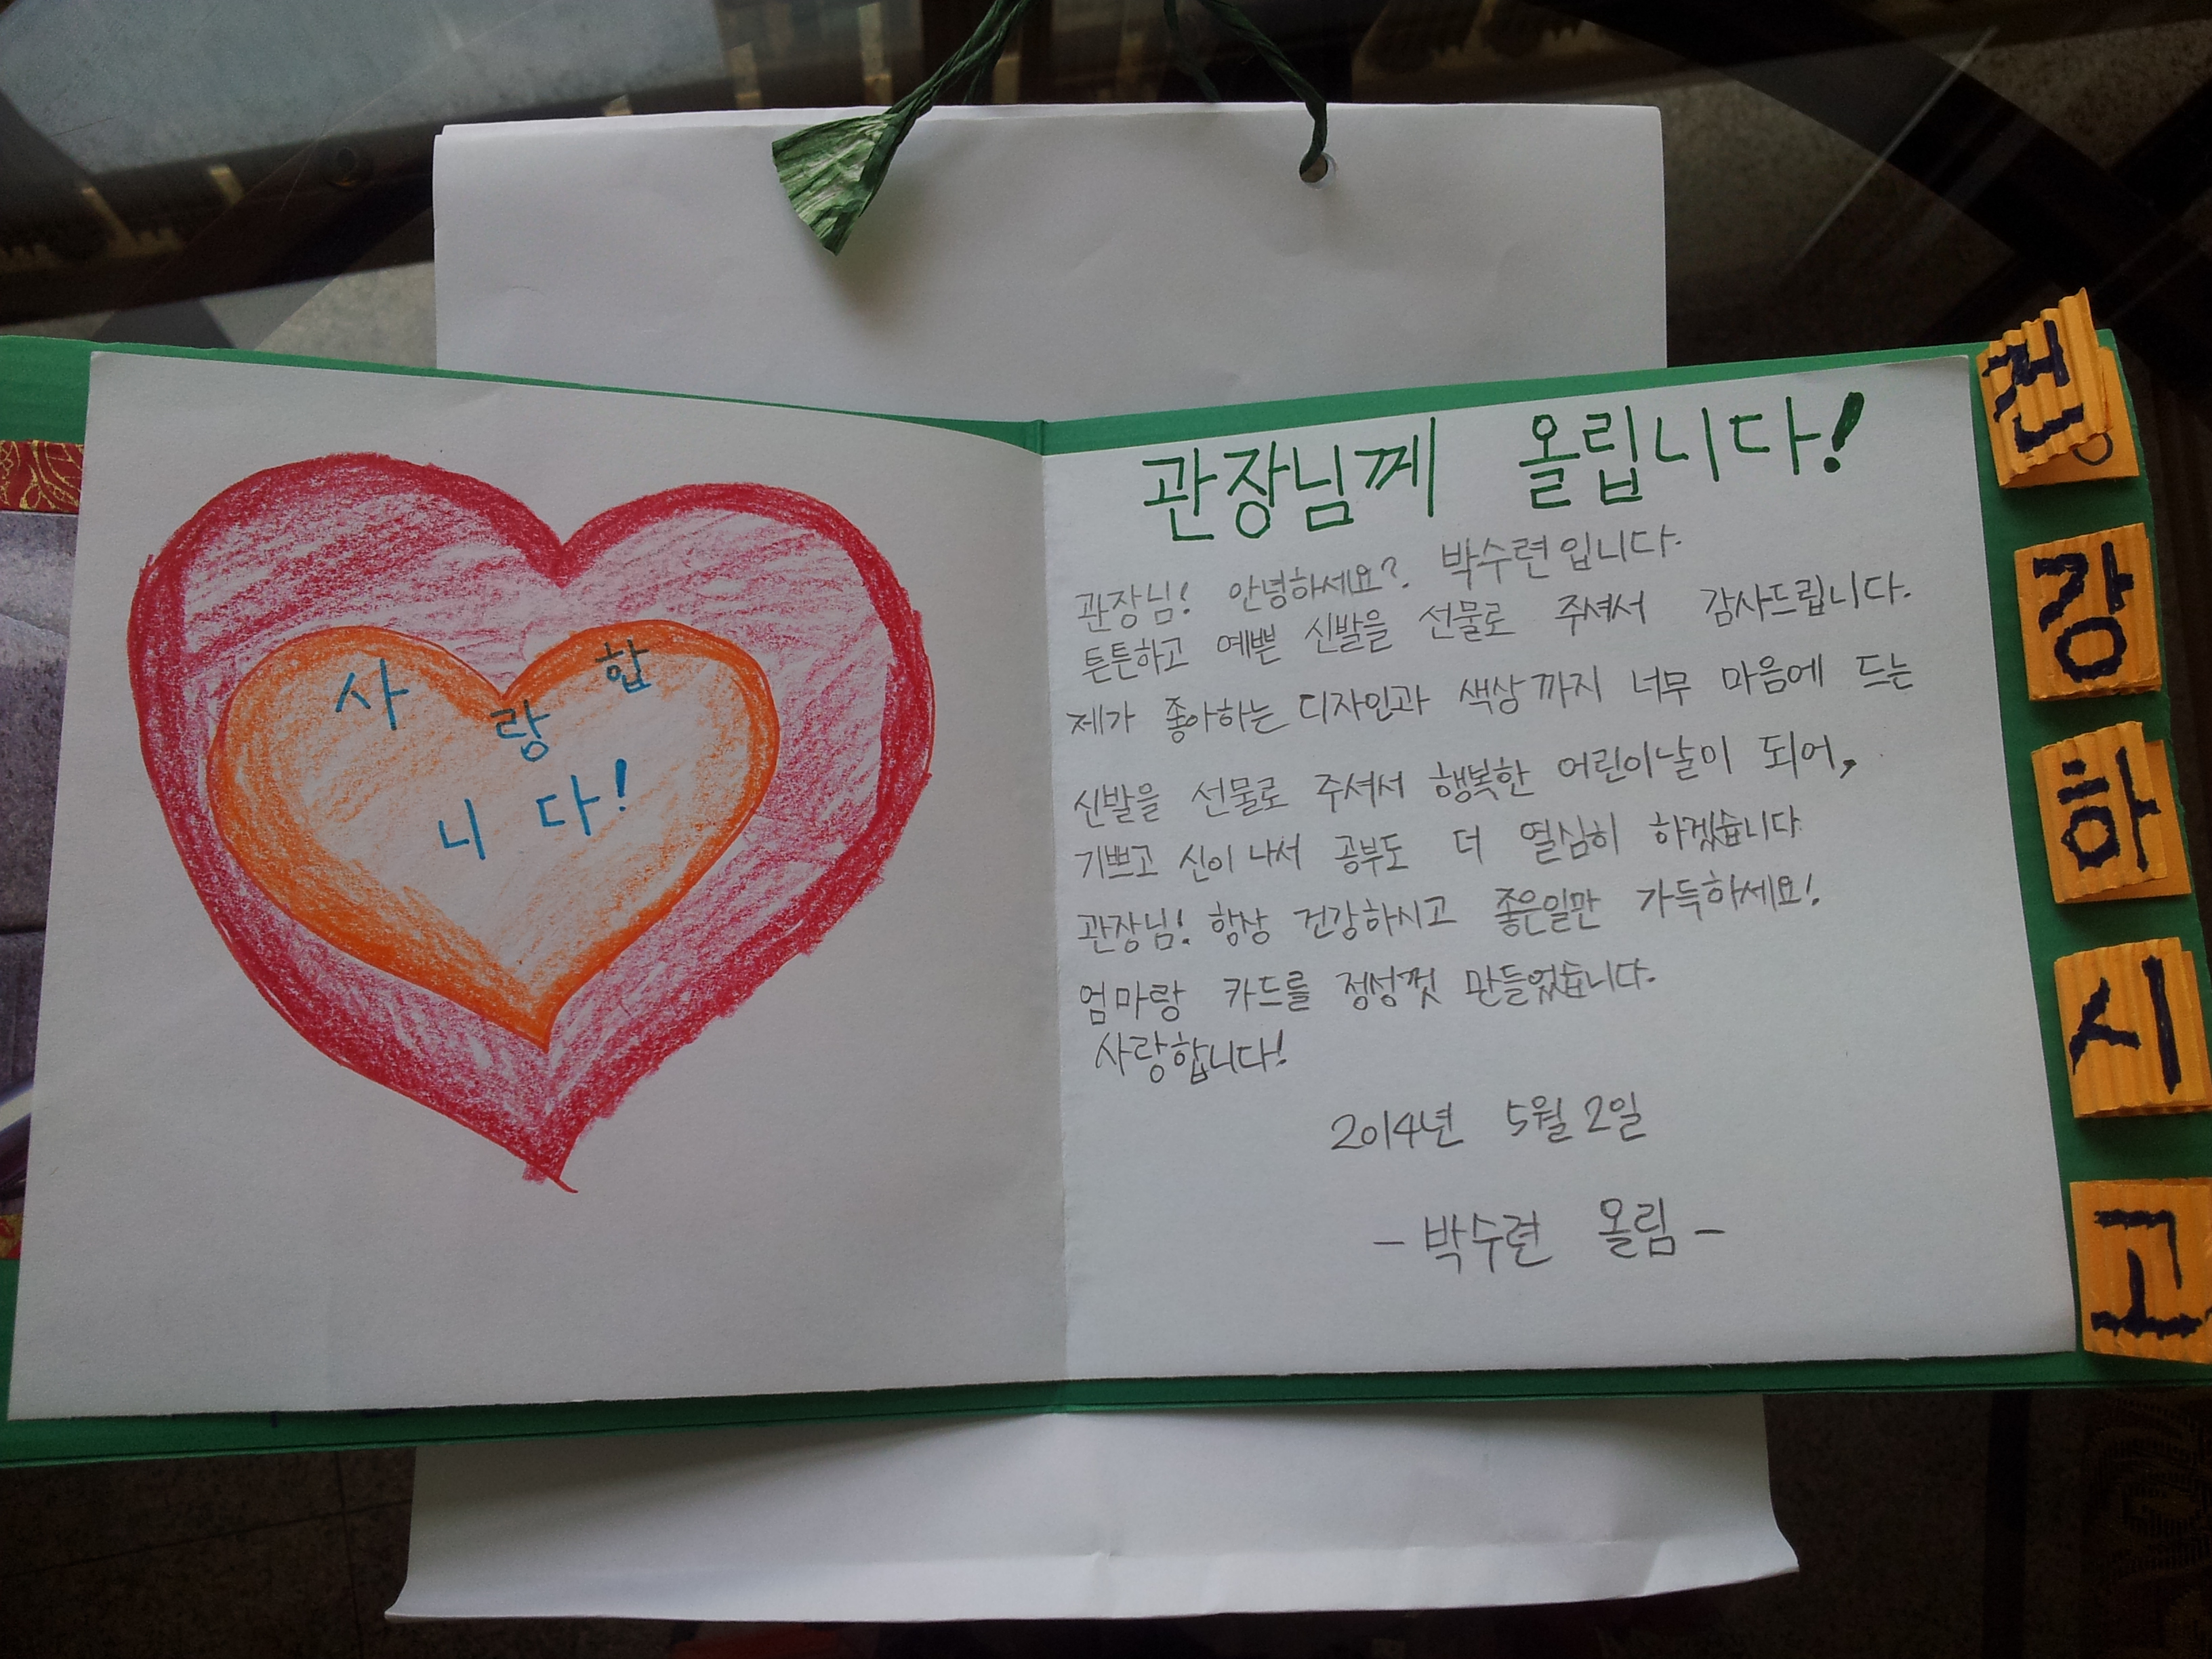 사랑합
니다!
관장님께 올립니다!
관장님! 안녕하세요? 박수련입니다.
튼튼하고 예쁜 신발을 선물로 주셔서 감사드립니다.
제가 좋아하는 디자인과 색상까지 너무 마음에 드는
신발을 선물로 주셔서 행복한 어린이날이 되어,
기쁘고 신이 나서 공부도 더 열심히 하겠습니다
관장님! 항상 건강하시고 좋은일만 가득하세요!
엄마랑 카드를 정성껏 만들었습니다.
사랑합니다!
2014년 5월 2일
- 박수련 올림 -
건
강
하
시
고